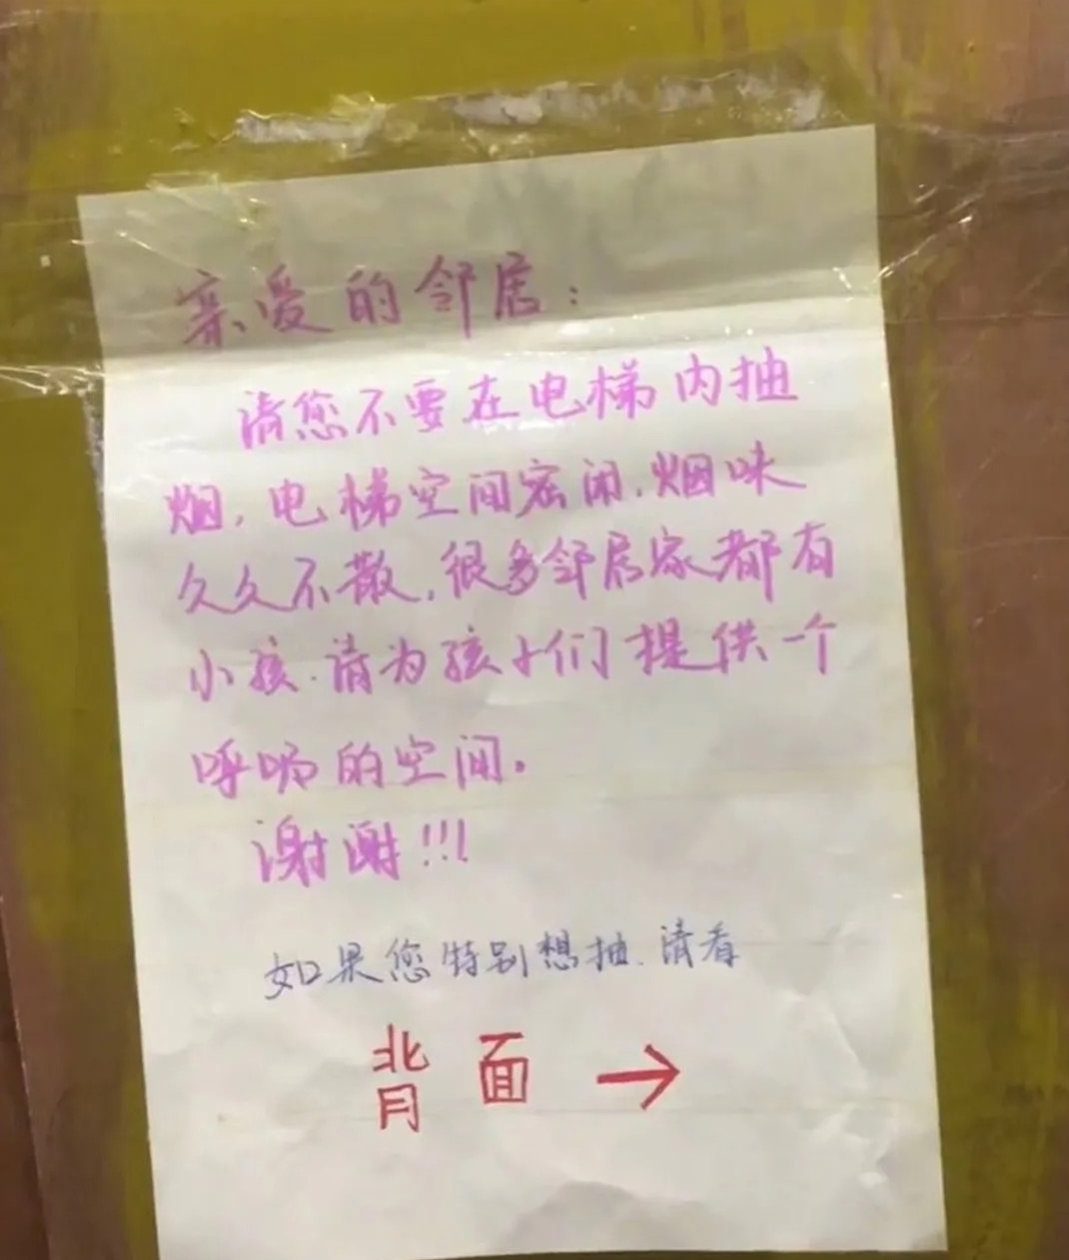 亲爱的邻居：
请您不要在电梯内抽
烟，电梯空间密闭，烟味
久久不散，很多邻居家都有
小孩.请为孩子们提供一个
呼吸的空间。
谢谢!!!
如果您特别想抽.请看
背面→